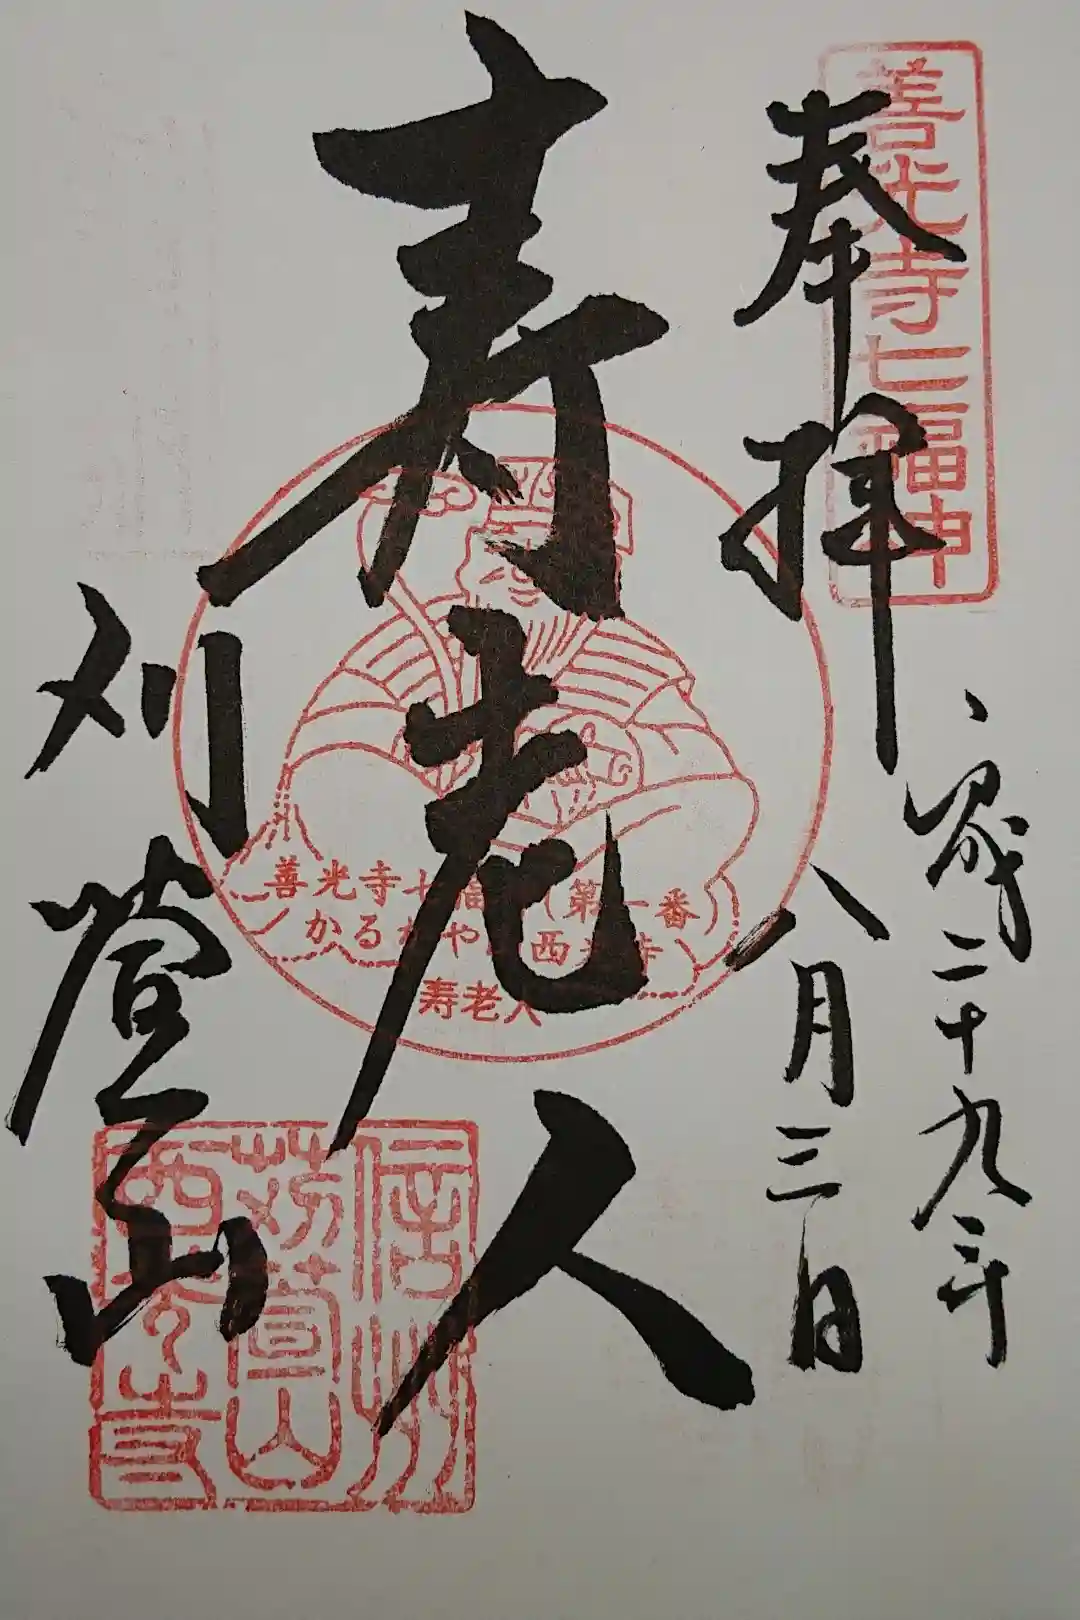 善光寺七福神
奉拝
歳二十九年
八月三日
寿老人
善光寺七福神(第一番)
かるかや山西光寺
寿老人
刈萱山
信州
苅萱山
西光寺